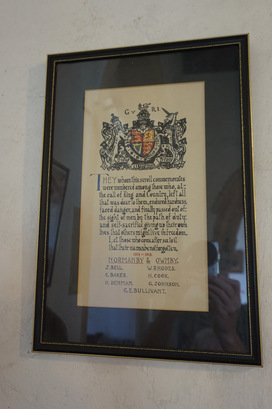 G V R I
THEY whom this scroll commemorates
were numbered among those who, at
the call of King and Country, left all
that was dear to them, endured hardness,
faced danger, and finally passed out of
the sight of men by the path of duty
and self-sacrifice, giving up their own
lives that others might live in freedom.
Let those who come after see to it
that their names be not forgotten.
1914-1918
NORMANBY & OWMBY.
J. BELL. W. RHODES.
E. BAKER. H. COOK.
H. DENMAN. G. JOHNSON.
G. E. BULLIVANT.